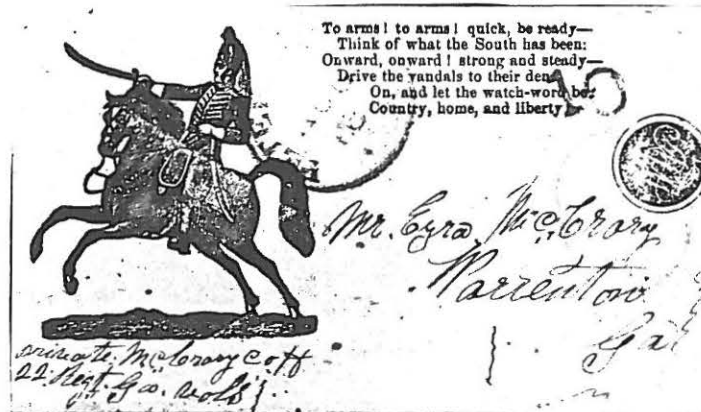 To arms! to arms! quick, be ready—
Think of what the South has been:
Onward, onward! strong and steady—
Drive the vandals to their den.
On, and let the watch-word be:
Country, home, and liberty.
10
Mr. Ezra McCrary
Warrenton
Ga
private McCrary Co H
22 Regt. Ga. vols